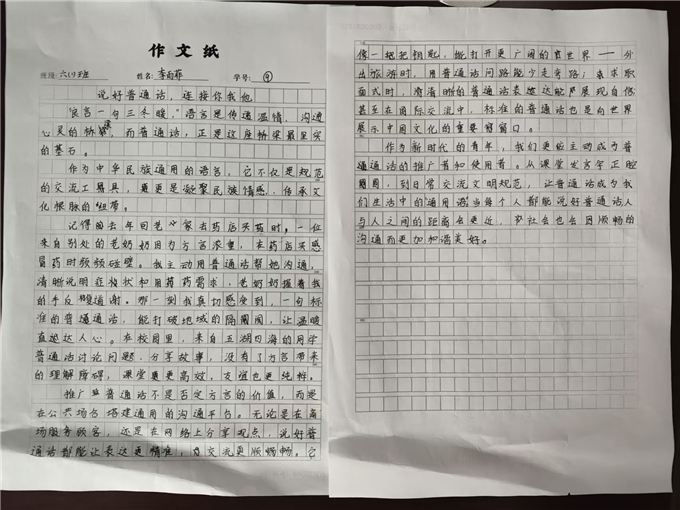 作文纸
班级：六(1)班 姓名：李雨菲 学号：9
说好普通话，连接你我他
“良言一句三冬暖，”语言是传递温情、沟通
心灵的桥梁，而普通话，正是这座桥梁最坚实
的基石。
作为中华民族通用的语言，它不仅是规范
的交流工具，更是凝聚民族情感，传承文
化根脉的纽带。
记得去年回老家去药店买药时，一位
来自别处的老奶奶因为方言浓重，在药店买感
冒药时频频碰壁。我主动用普通话帮她沟通，
清晰说明症状和用药需求，老奶奶握着我
的手反复道谢。那一刻我真切感受到，一句标
准的普通话，能打破地域的隔阂，让温暖
直达人心。在校园里，来自五湖四海的同学
普通话讨论问题、分享故事，没有了方言带来
的理解障碍，课堂更高效，友谊也更纯粹。
推广普通话不是否定方言的价值，而是
在公共场合搭建通用的沟通平台。无论是在商
场服务顾客，还是在网络上分享观点，说好普
通话都能让表达更精准，交流更顺畅。它
像一把把钥匙，能打开更广阔的世界——外
出旅游时，用普通话问路能少走弯路；求职
面试时，清晰的普通话表达能展现自信
甚至在国际交流中，标准的普通话也是向世界
展示中国文化的重要窗口。
作为新时代的青年，我们更应主动成为普
通话的推广者和使用者。从课堂发言字正腔
圆，到日常交流文明规范，让普通话成为我
们生活中的通用语当每个人都能说好普通话人
与人之间的距离会更近，社会也会因顺畅的
沟通而更加和谐美好。